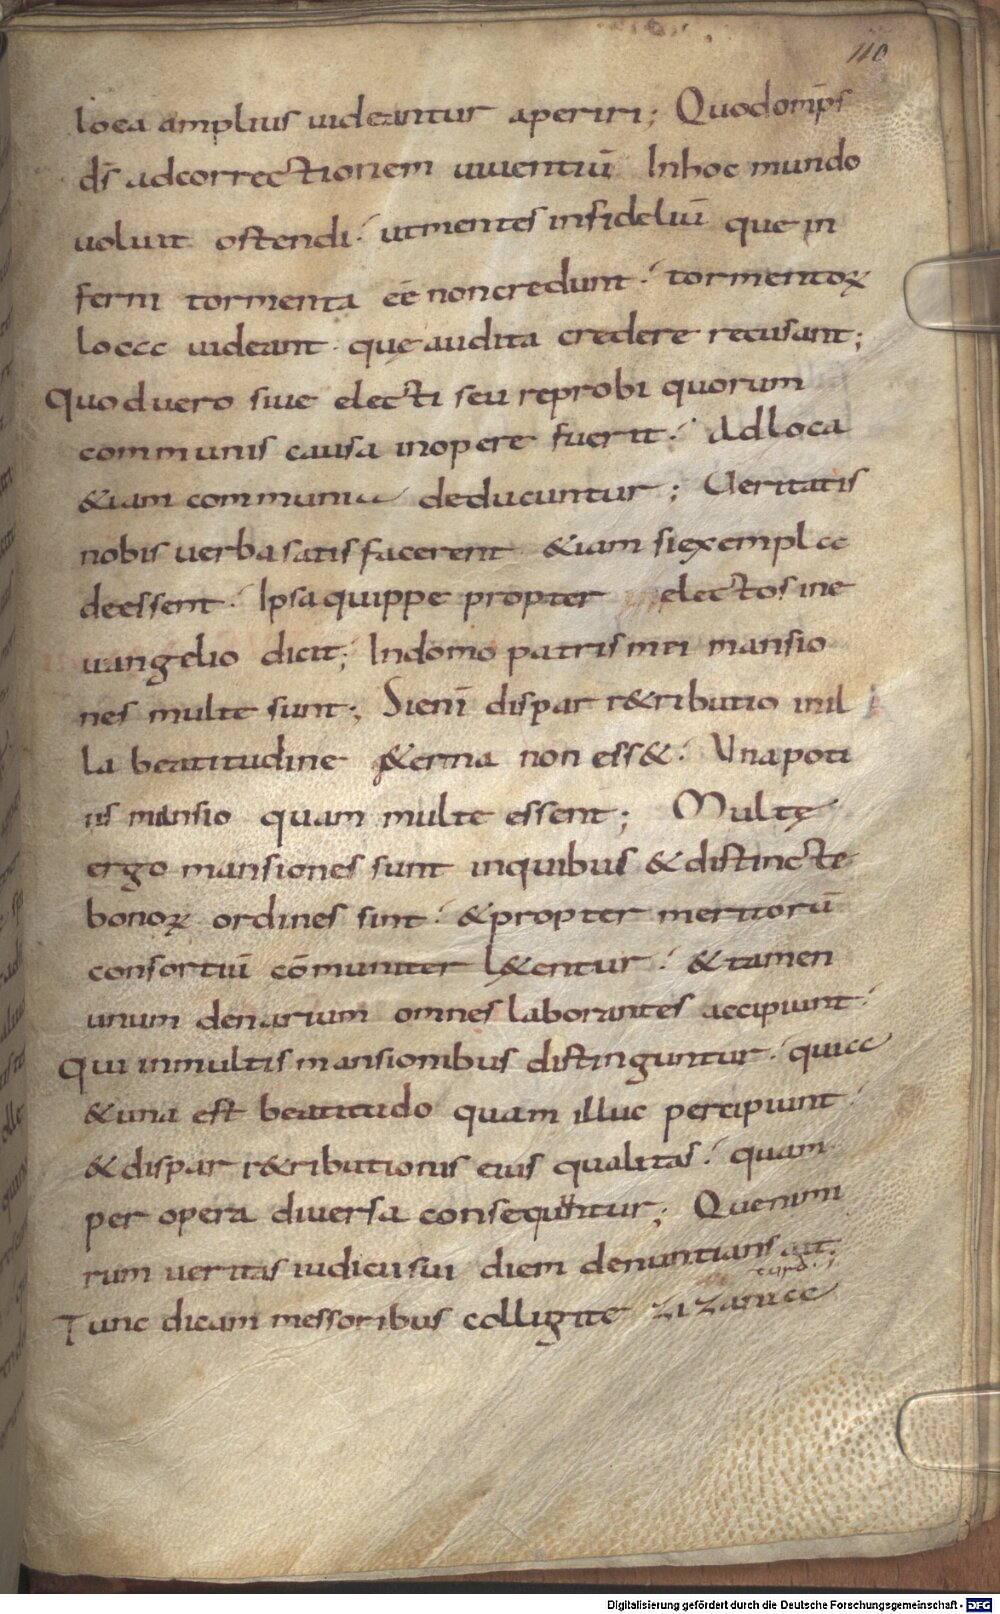 110
loca amplius uideantur aperiri; Quodomp̄s
d̄s adcorrectionem uiuentiū Inhoc mundo
uoluit ostendi; utmentes infideliū que in
ferni tormenta eē noncredunt; tormentoꝝ
loca uideant. quę audita credere recusant;
Quod uero siue electi seu reprobi quorum
communis causa inopere fuerit; Adloca
&iam communia deducuntur; Ueritatis
nobis uerba satisfacerent &iam siexempla
deessent; Ipsa quippe propter electos ine
uangelio dicit; Indomo patris mei mansio
nes multe sunt; Sienī dispar r&ributio inil
la beatitudine &erna non ess&; Una poti
us mansio quam multe essent; Multę
ergo mansiones sunt inquibus & distincte
bonoꝝ ordines sint; & propter meritorū
consortiū cōmuniter l&entur; & tamen
unum denarium omnes laborantes accipiunt;
Qui inmultis mansionibus distinguntur; quia
& una est beatitudo quam illuc percipiunt;
& dispar r&ributionis eius qualitas; quam
per opera diuersa consequntur; Quenimi
rum ueritas iudicii sui diem denuntians ait;
Tunc dicam messoribus colligite zizania